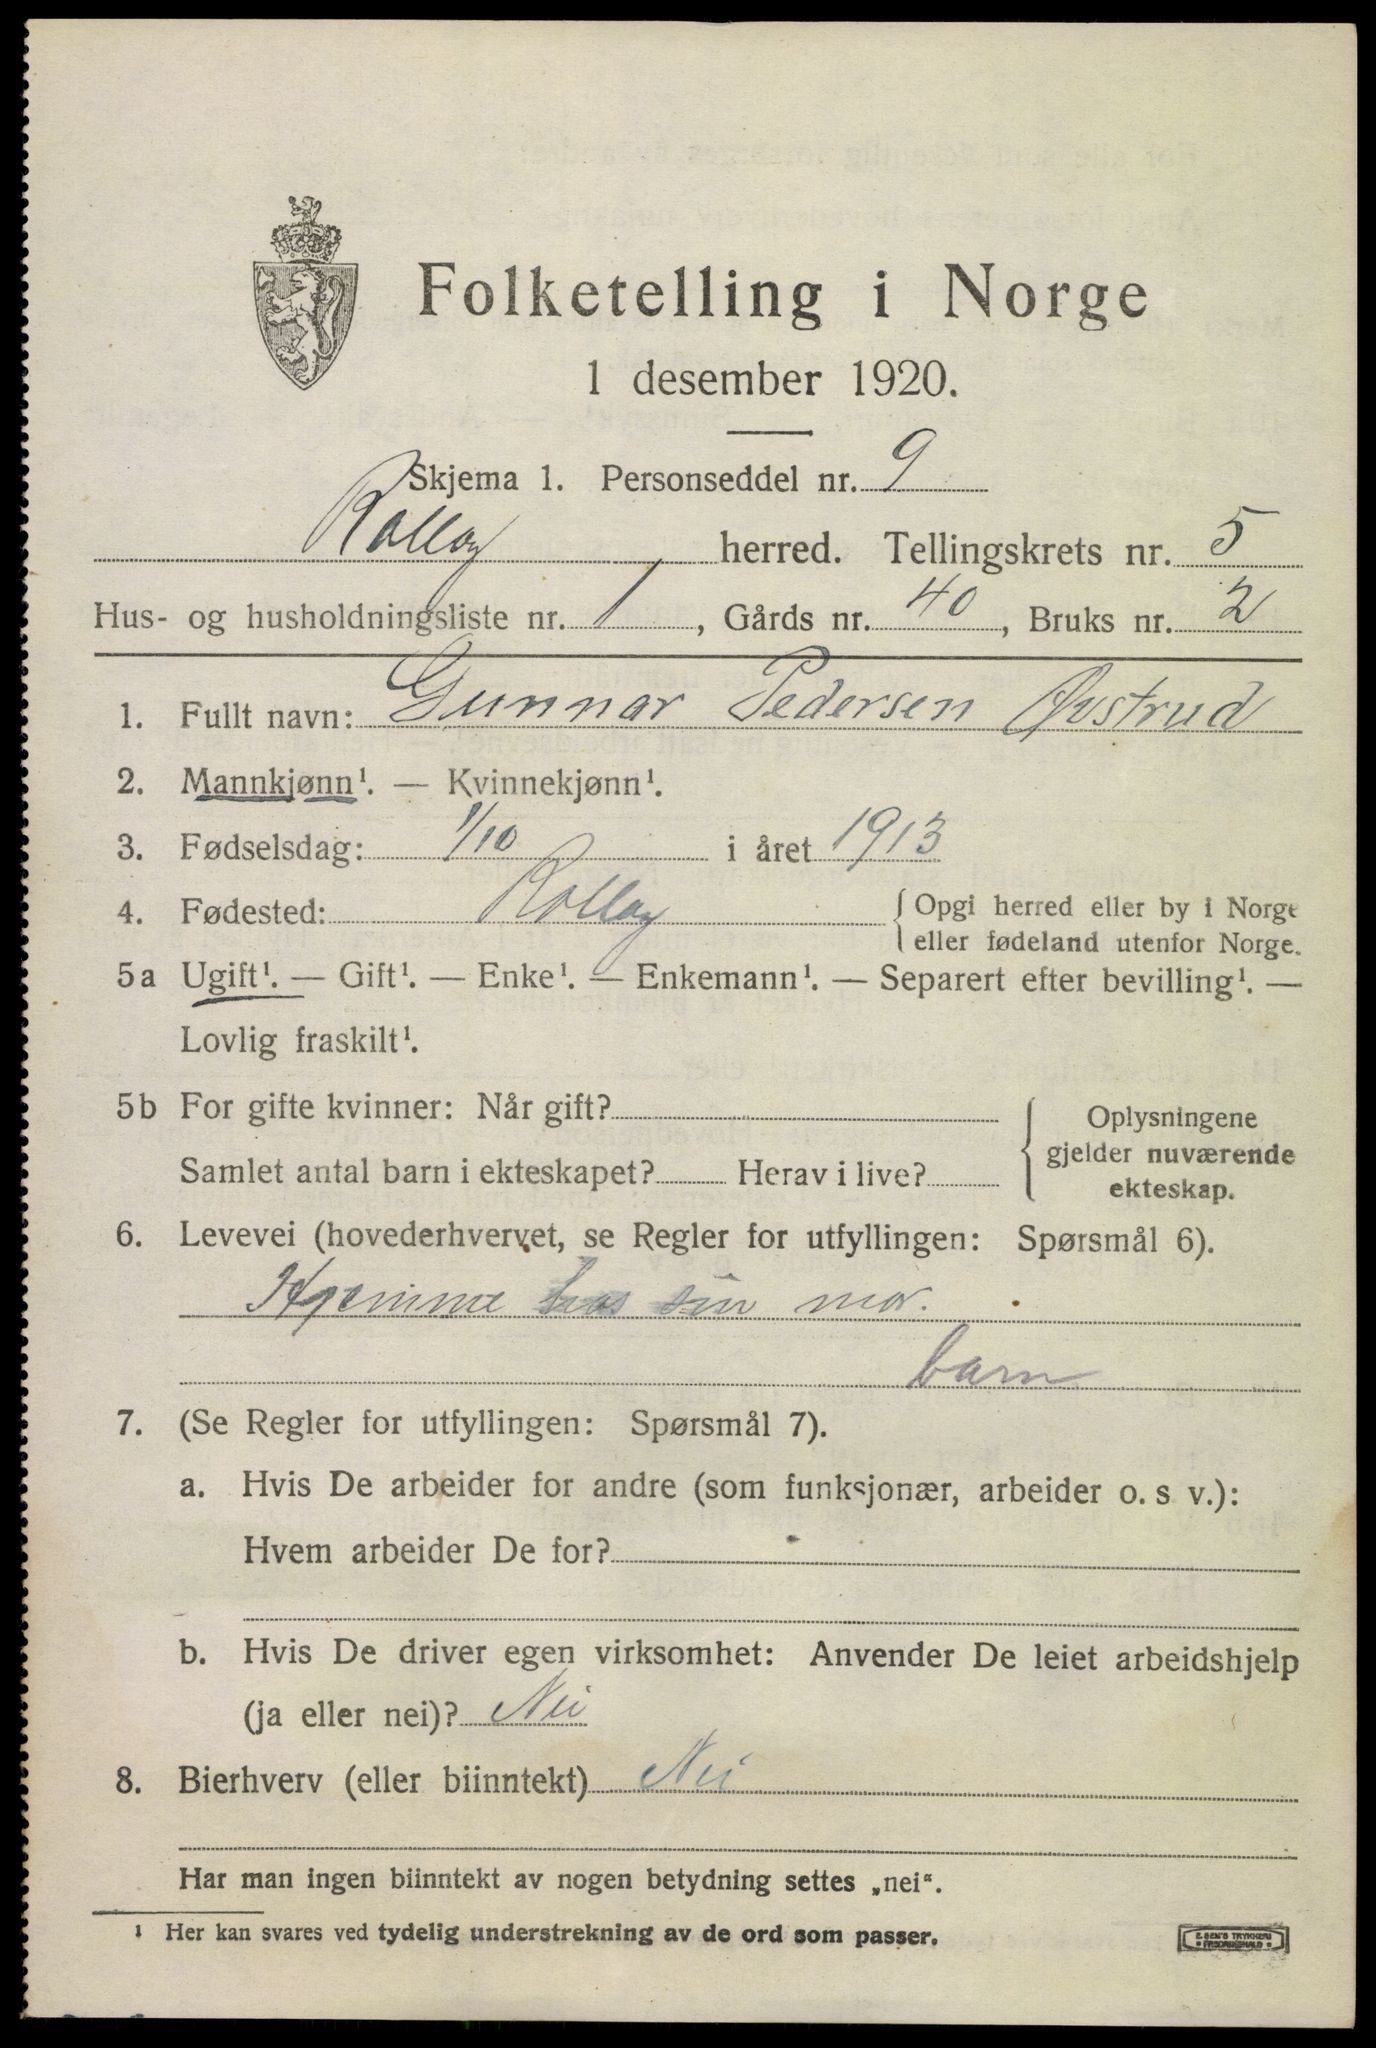 Folketelling i Norge
1 desember 1920.
Skjema 1. Personseddel nr. 9
Rollag herred. Tellingskrets nr. 5
Hus- og husholdningsliste nr. 1, Gårds nr. 40, Bruks nr. 2
1. Fullt navn: Gunnar Pedersen Øvstrud
2. Mannkjønn¹. — Kvinnekjønn¹.
3. Fødselsdag: 1/10 i året 1913
4. Fødested: Rollag { Opgi herred eller by i Norge
eller fødeland utenfor Norge.
5a Ugift¹. — Gift¹. — Enke¹. — Enkemann¹. — Separert efter bevilling¹. —
Lovlig fraskilt¹.
5b For gifte kvinner: Når gift? { Oplysningene
gjelder nuværende
Samlet antal barn i ekteskapet? Herav i live? ekteskap.
6. Levevei (hovederhvervet, se Regler for utfyllingen: Spørsmål 6).
Hjemme hos sin mor.
barn
7. (Se Regler for utfyllingen: Spørsmål 7).
a. Hvis De arbeider for andre (som funksjonær, arbeider o. s v.):
Hvem arbeider De for?
b. Hvis De driver egen virksomhet: Anvender De leiet arbeidshjelp
(ja eller nei)? Nei
8. Bierhverv (eller biinntekt) Nei
Har man ingen biinntekt av nogen betydning settes „nei“.
¹ Her kan svares ved tydelig understrekning av de ord som passer.
E. SEM'S TRYKKERI
• FREDRIKSHALD •